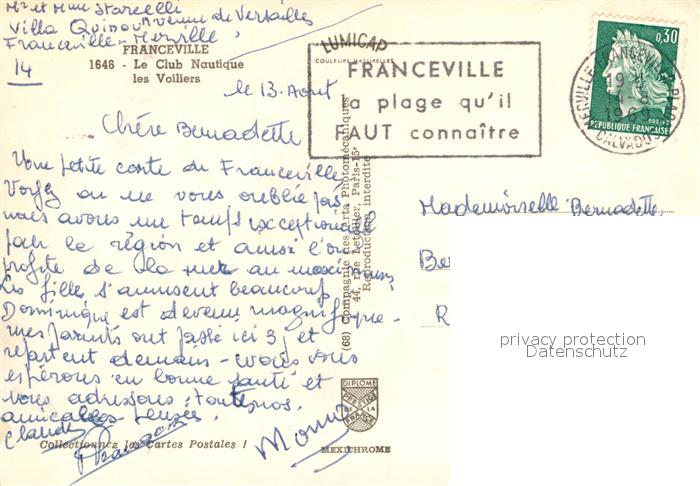 Mr et Mme Starcelli
Villa avenue de Versailles
Franceville-Merville
14
FRANCEVILLE
1646 - Le Club Nautique
les Voiliers
LUMICAP
COULEURS NATURELLES
FRANCEVILLE
la plage qu'il
FAUT connaître
0,30
POSTES
REPUBLIQUE FRANÇAISE
MERVILLE-FRANCEVILLE-PLAGE
CALVADOS
le 13. Août
Chère Bernadette
Une petite carte de Franceville
Voyez on ne vous oublie pas
nous avons un temps exceptionnel
pour la région et aussi l'on
profite de la mer au maximum
Les filles s'amusent beaucoup
Dominique est devenue magnifique -
mes parents ont passé ici 3 j et
repartent demain - nous vous
espérons en bonne santé et
vous adressons toutes nos
amicales pensées.
Claude
Mademoiselle Bernadette
Be
R
(68) Compagnie des Arts Photomécaniques
44, rue Letellier, Paris-15e
Reproduction interdite
privacy protection
Datenschutz
DIPLOME
PRESTIGE
DE LA
FRANCE
MEXICHROME
Collectionnez les Cartes Postales !